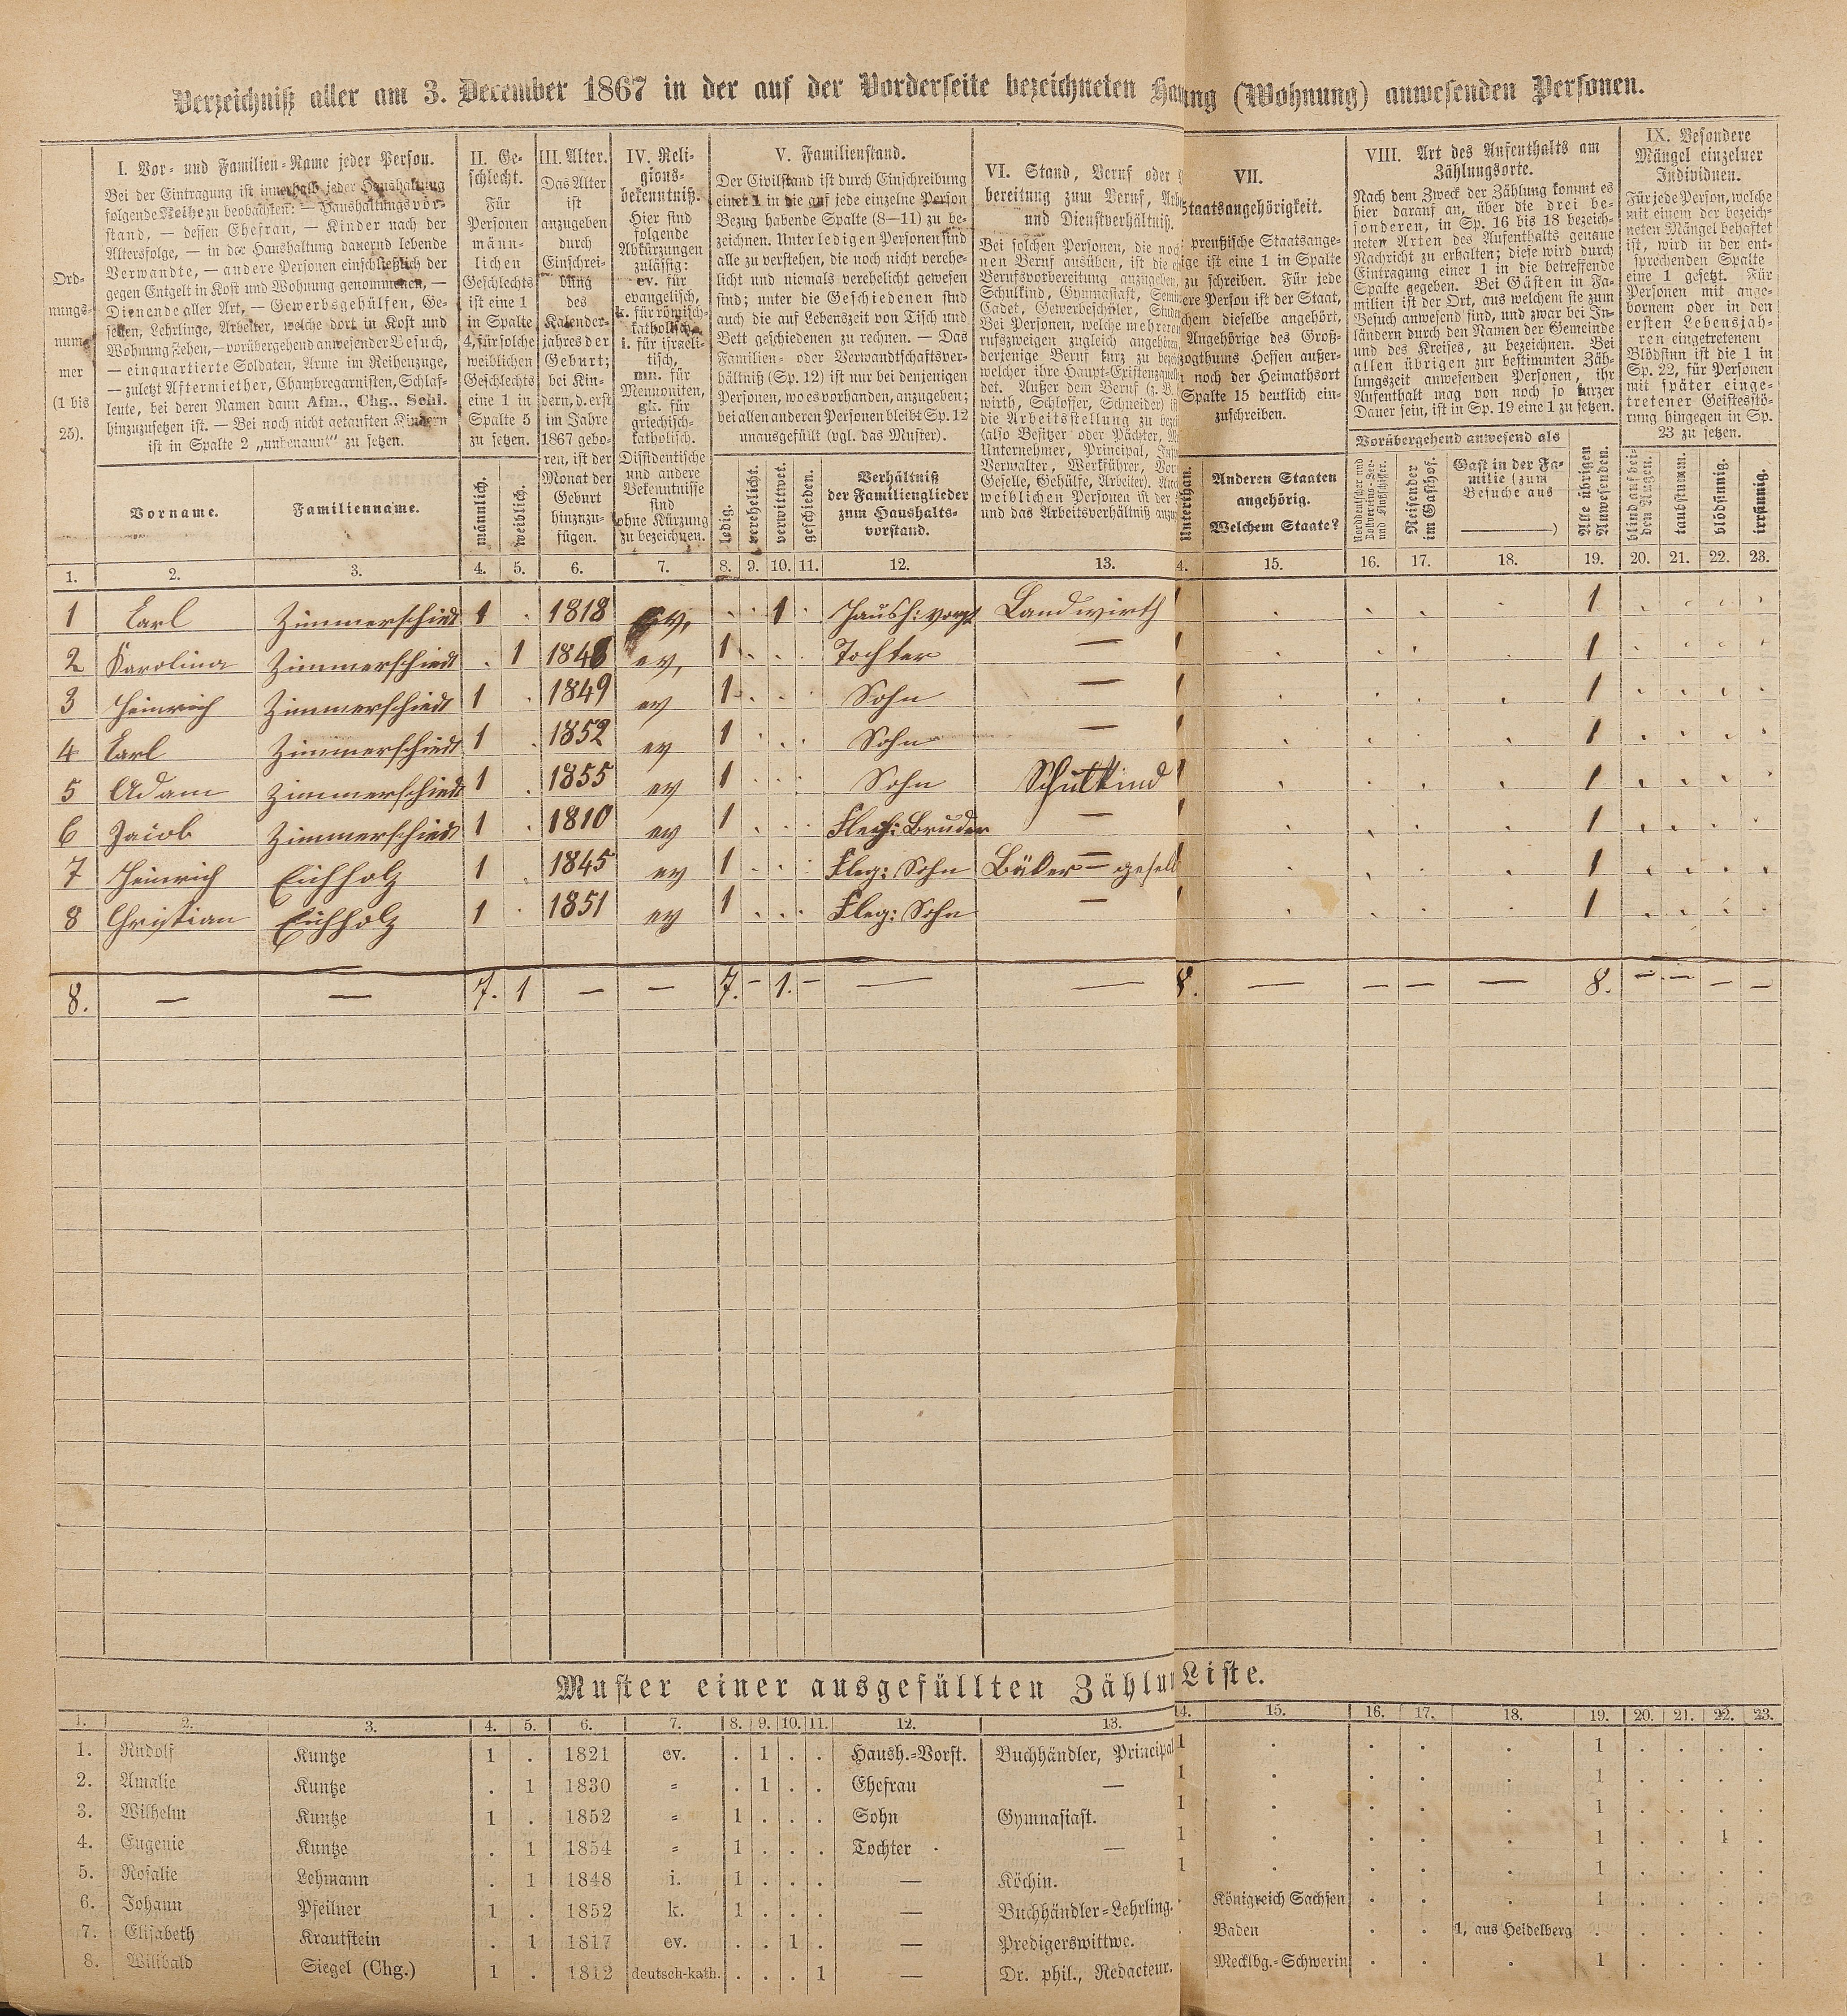 Verzeichniß aller am 3. December 1867 in der auf der Vorderseite bezeichneten Hau ng (Wohnung) anwesenden Personen.
Ord-
nungs-
num-
mer
(1 bis
25).
I. Vor- und Familien-Name jeder Person.
Bei der Eintragung ist innerhalb jeder Haushaltung
folgende Reihe zu beobachten: — Haushaltungsvor-
stand, — dessen Ehefrau, — Kinder nach der
Altersfolge, — in der Haushaltung dauernd lebende
Verwandte, — andere Personen einschließlich der
gegen Entgelt in Kost und Wohnung genommenen, —
Dienende aller Art, — Gewerbsgehülfen, Ge-
sellen, Lehrlinge, Arbeiter, welche dort in Kost und
Wohnung stehen, — vorübergehend anwesender Besuch,
— einquartierte Soldaten, Arme im Reihenzuge,
— zuletzt Aftermiether, Chambregarnisten, Schlaf-
leute, bei deren Namen dann Afm., Chg., Schl.
hinzuzusetzen ist. — Bei noch nicht getauften Kindern
ist in Spalte 2 „unbenannt“ zu setzen.
Vorname.
Familienname.
II. Ge-
schlecht.
Für
Personen
männ-
lichen
Geschlechts
ist eine 1
in Spalte
4, für solche
weiblichen
Geschlechts
eine 1 in
Spalte 5
zu setzen.
männlich.
weiblich.
III. Alter.
Das Alter
ist
anzugeben
durch
Einschrei-
bung
des
Kalender-
jahres der
Geburt;
bei Kin-
dern, d. erst
im Jahre
1867 gebo-
ren, ist der
Monat der
Geburt
hinzuzu-
fügen.
IV. Reli-
gions-
bekenntniß.
Hier sind
folgende
Abkürzungen
zulässig:
ev. für
evangelisch,
k. für römisch-
katholisch,
i. für israeli-
tisch,
mn. für
Mennoniten,
gk. für
griechisch-
katholisch.
Dissidentische
und andere
Bekenntnisse
sind
ohne Kürzung
zu bezeichnen.
V. Familienstand.
Der Civilstand ist durch Einschreibung
einer 1 in die auf jede einzelne Person
Bezug habende Spalte (8—11) zu be-
zeichnen. Unter ledigen Personen sind
alle zu verstehen, die noch nicht verehe-
licht und niemals verehelicht gewesen
sind; unter die Geschiedenen sind
auch die auf Lebenszeit von Tisch und
Bett geschiedenen zu rechnen. — Das
Familien- oder Verwandtschaftsver-
hältniß (Sp. 12) ist nur bei denjenigen
Personen, wo es vorhanden, anzugeben;
bei allen anderen Personen bleibt Sp. 12
unausgefüllt (vgl. das Muster).
ledig.
verehelicht.
verwittwet.
geschieden.
Verhältniß
der Familienglieder
zum Haushalts-
vorstand.
VI. Stand, Beruf oder
bereitung zum Beruf, Arbe
und Dienstverhältniß.
Bei solchen Personen, die noch
nen Beruf ausüben, ist die
Berufsvorbereitung anzugeben,
Schulkind, Gymnasiast, Semin
Cadet, Gewerbeschüler, Stude
Bei Personen, welche mehreren
rufszweigen zugleich angehören,
derjenige Beruf kurz zu bezei
welcher ihre Haupt-Existenzquelle
det. Außer dem Beruf (z. B.
wirth, Schlosser, Schneider) is
die Arbeitsstellung zu bezei
(also Besitzer oder Pächter,
Unternehmer, Principal,
Verwalter, Werkführer, Vor
Geselle, Gehülfe, Arbeiter). Auch
weiblichen Personen ist der
und das Arbeitsverhältniß anzu
VII.
Staatsangehörigkeit.
preußische Staatsange-
ige ist eine 1 in Spalte
zu schreiben. Für jede
ere Person ist der Staat,
chem dieselbe angehört,
Angehörige des Groß-
zogthums Hessen außer-
noch der Heimathsort
Spalte 15 deutlich ein-
zuschreiben.
Unterthan.
Anderen Staaten
angehörig.
Welchem Staate?
VIII. Art des Aufenthalts am
Zählungsorte.
Nach dem Zweck der Zählung kommt es
hier darauf an, über die drei be-
sonderen, in Sp. 16 bis 18 bezeich-
neten Arten des Aufenthalts genaue
Nachricht zu erhalten; diese wird durch
Eintragung einer 1 in die betreffende
Spalte gegeben. Bei Gästen in Fa-
milien ist der Ort, aus welchem sie zum
Besuch anwesend sind, und zwar bei In-
ländern durch den Namen der Gemeinde
und des Kreises, zu bezeichnen. Bei
allen übrigen zur bestimmten Zäh-
lungszeit anwesenden Personen, ihr
Aufenthalt mag von noch so kurzer
Dauer sein, ist in Sp. 19 eine 1 zu setzen.
Vorübergehend anwesend als
Norddeutscher und
Zollvereins-See-
und Flußschiffer.
Reisender
im Gasthof.
Gast in der Fa-
milie (zum
Besuche aus
)
Alle übrigen
Anwesenden.
IX. Besondere
Mängel einzelner
Individuen.
Für jede Person, welche
mit einem der bezeich-
neten Mängel behaftet
ist, wird in der ent-
sprechenden Spalte
eine 1 gesetzt. Für
Personen mit ange-
bornem oder in den
ersten Lebensjah-
ren eingetretenem
Blödsinn ist die 1 in
Sp. 22, für Personen
mit später einge-
tretener Geistesstö-
rung hingegen in Sp.
23 zu setzen.
blind auf bei-
den Augen.
taubstumm.
blödsinnig.
irrsinnig.
1. 2. 3. 4. 5. 6. 7. 8. 9. 10. 11. 12. 13. 4. 15. 16. 17. 18. 19. 20. 21. 22. 23.
1 Carl Zimmerschied 1 . 1818 ev. . . 1 . Haush: vorst Landwirth 1 . . . . 1 . . . .
2 Karolina Zimmerschiedt . 1 1848 ev, 1 . . . Tochter — 1 . . . . 1 . . . .
3 Heinrich Zimmerschiedt 1 . 1849 ev 1 . . . Sohn — 1 . . . . 1 . . . .
4 Carl Zimmerschiedt 1 . 1852 ev 1 . . . Sohn — 1 . . . . 1 . . . .
5 Adam Zimmerschiedt 1 . 1855 ev 1 . . . Sohn Schulkind 1 . . . . 1 . . . .
6 Jacob Zimmerschiedt 1 . 1810 ev 1 . . . Fleg: Bruder — 1 . . . . 1 . . . .
7 Heinrich Eichholz 1 . 1845 ev 1 . . . Fleg: Sohn Bäker = gesell 1 . . . . 1 . . . .
8 Christian Eichholz 1 . 1851 ev 1 . . . Fleg: Sohn — 1 . . . . 1 . . . .
8. — — 7. 1 — — 7. — 1. — — — 8. — — — — 8. — — — —
Muster einer ausgefüllten Zählu Liste.
1. 2. 3. 4. 5. 6. 7. 8. 9. 10. 11. 12. 13. 14. 15. 16. 17. 18. 19. 20. 21. 22. 23.
1. Rudolf Kuntze 1 . 1821 ev. . 1 . . Haush.-Vorst. Buchhändler, Principal 1 . . . . 1 . . . .
2. Amalie Kuntze . 1 1830 = . 1 . . Ehefrau — 1 . . . . 1 . . . .
3. Wilhelm Kuntze 1 . 1852 = 1 . . . Sohn Gymnasiast. 1 . . . . 1 . . . .
4. Eugenie Kuntze . 1 1854 = 1 . . . Tochter — 1 . . . . 1 . . 1 .
5. Rosalie Lehmann . 1 1848 i. 1 . . . — Köchin. 1 . . . . 1 . . . .
6. Johann Pfeilner 1 . 1852 k. 1 . . . — Buchhändler-Lehrling. . Königreich Sachsen . . . 1 . . . .
7. Elisabeth Krautstein . 1 1817 ev. . . 1 . — Predigerswittwe. . Baden . . 1, aus Heidelberg . . . . .
8. Willibald Siegel (Chg.) 1 . 1812 deutsch-kath. . . . 1 — Dr. phil., Redacteur. Mecklbg.-Schwerin . . . 1 . . . .